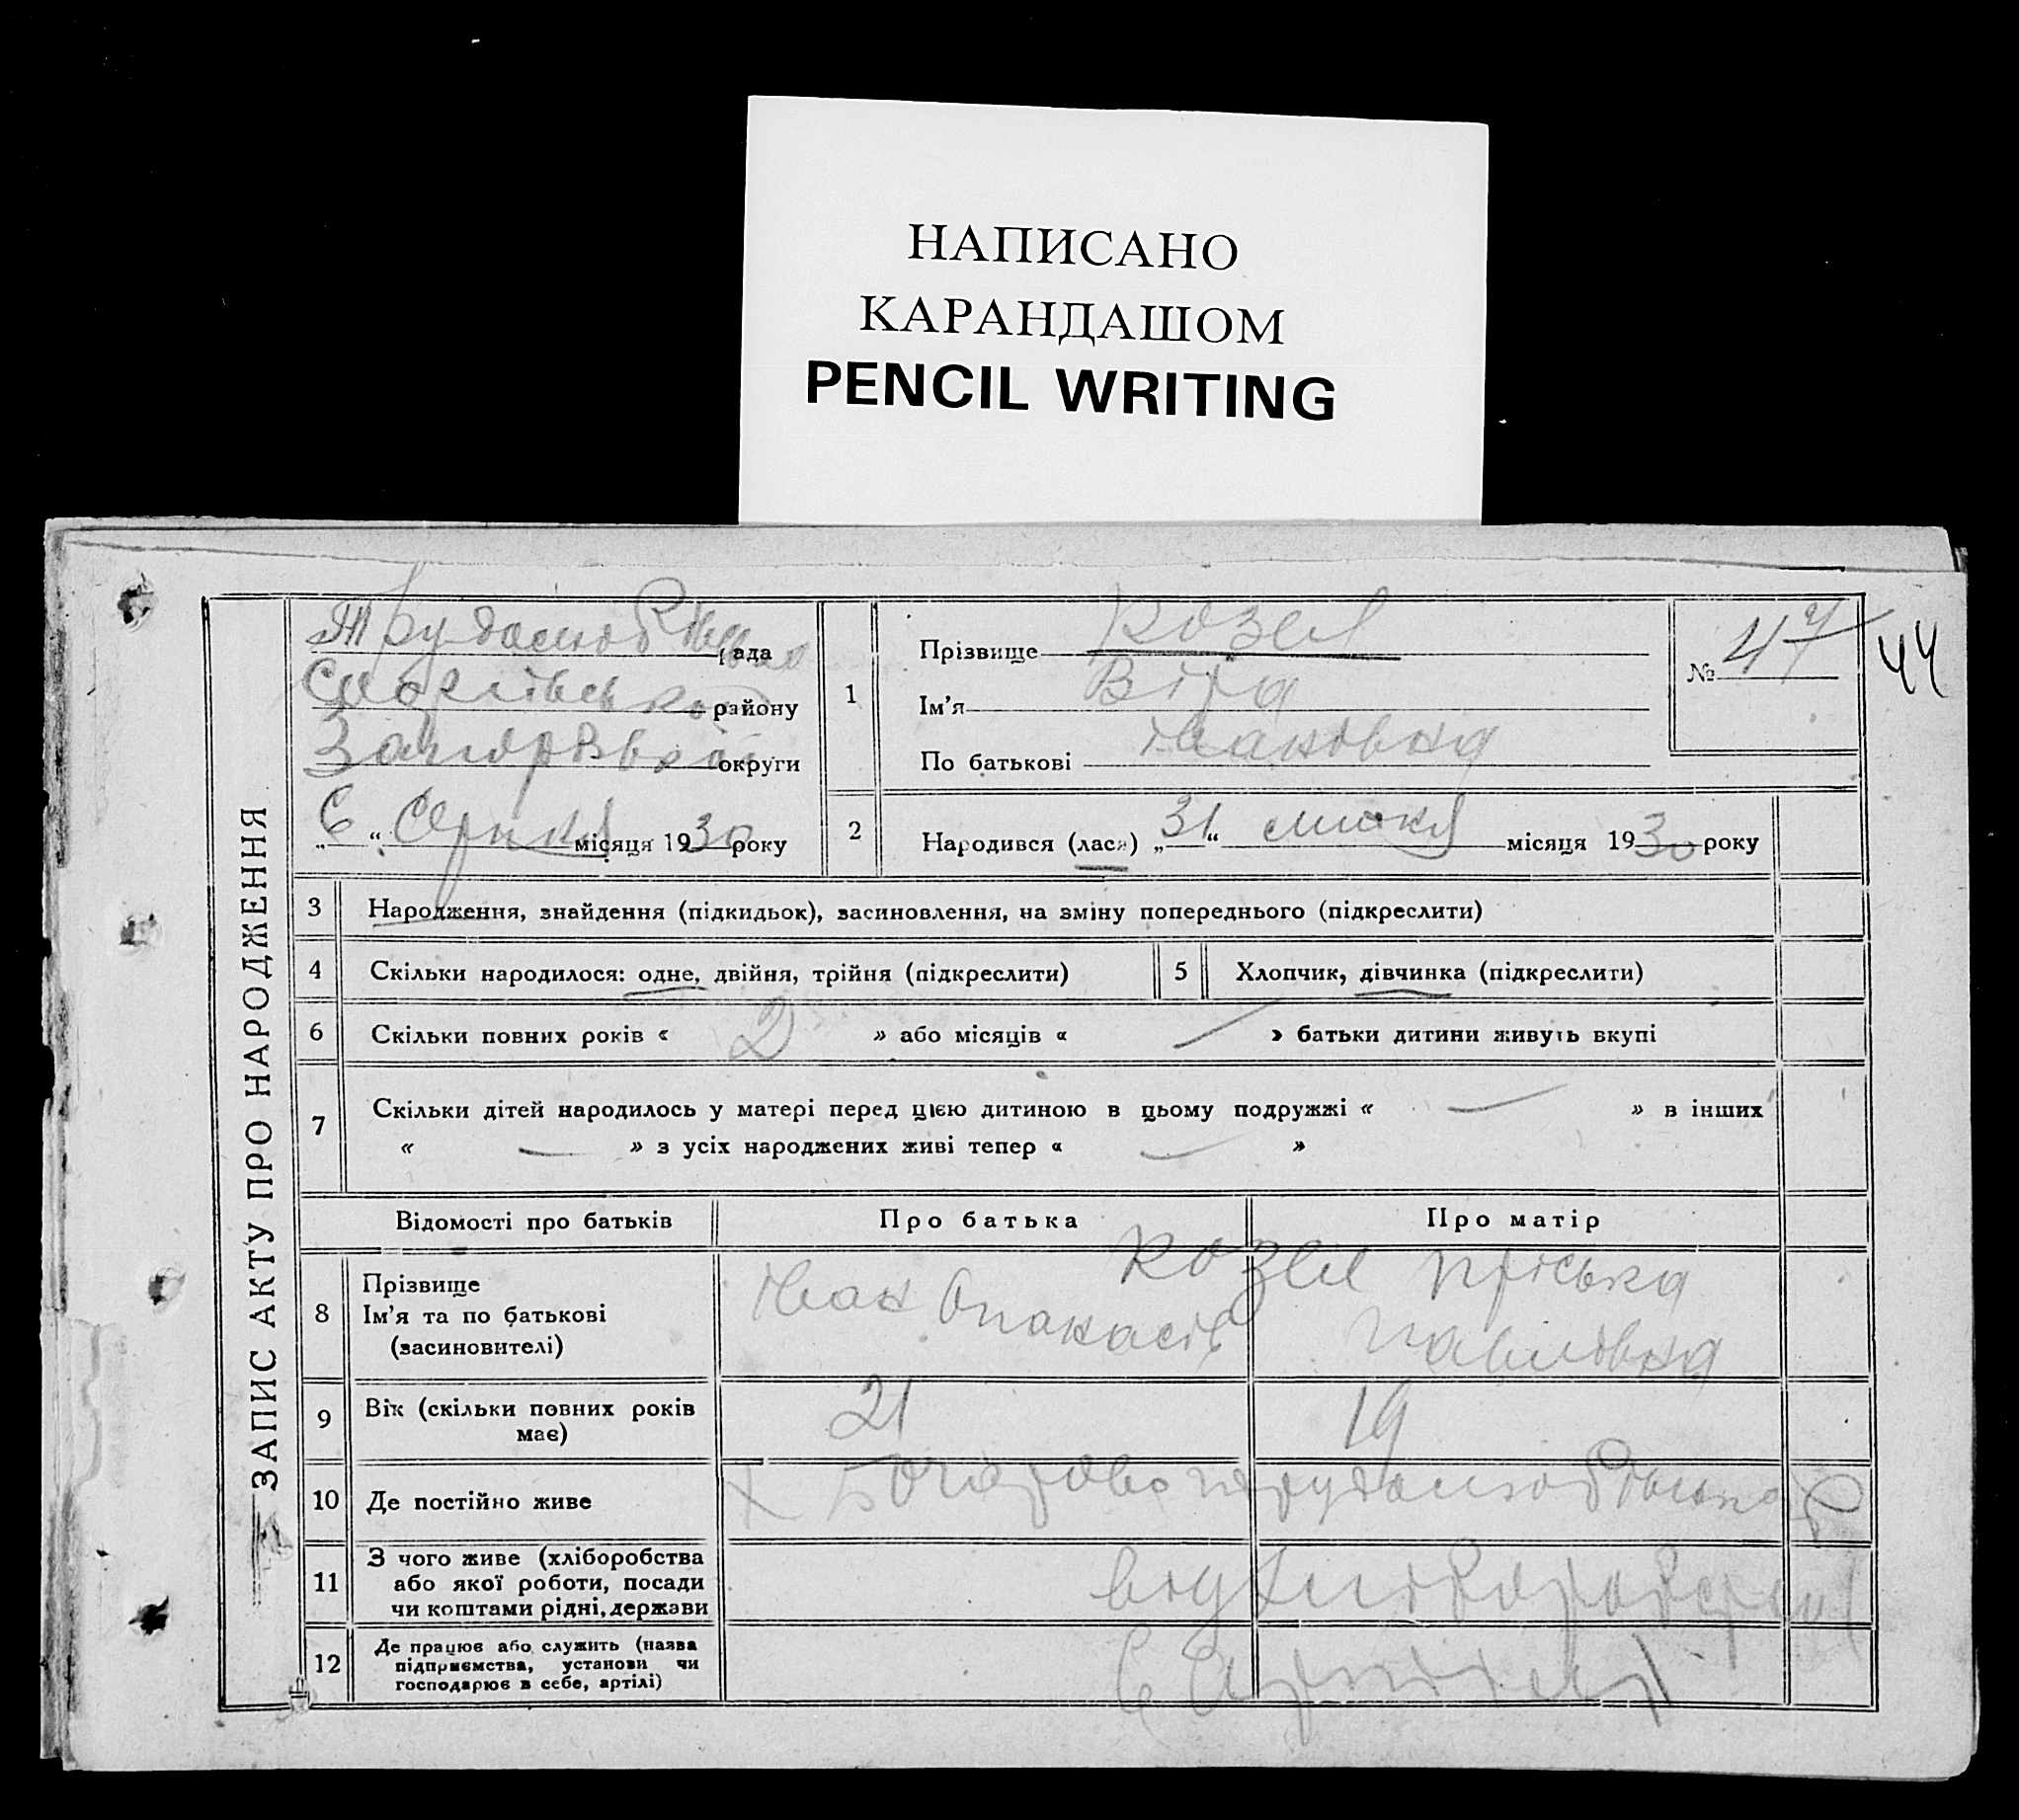 НАПИСАНО
КАРАНДАШОМ
PENCIL WRITING
ЗАПИС АКТУ ПРО НАРОДЖЕННЯ
рада
району
округи
6 " Серпня місяця 1930 року
1
Прізвище Козел
Ім'я Віра
По батькові Івановна
№ 47
44
2 Народився (лася) „31" липня місяця 1930 року
3 Народження, знайдення (підкидьок), засиновлення, на зміну попереднього (підкреслити)
4 Скільки народилося: одне, двійня, трійня (підкреслити) 5 Хлопчик, дівчинка (підкреслити)
6 Скільки повних років « 2 » або місяців « — » батьки дитини живуть вкупі
7 Скільки дітей народилось у матері перед цією дитиною в цьому подружжі « — » в інших
« — » з усіх народжених живі тепер « — »
Відомості про батьків Про батька Про матір
8 Прізвище
Ім'я та по батькові
(засиновителі)
Козел
Іван Опанасів
Пріська
Павлівна
9 Вік (скільки повних років
має)
21 19
10 Де постійно живе
11 З чого живе (хліборобства
або якої роботи, посади
чи коштами рідні, держави
12 Де працює або служить (назва
підприємства, установи чи
господарює в себе, артілі)